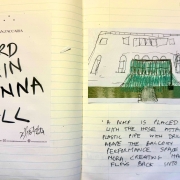 RD
IN
NNA
LL
' A PUMP IS PLACED
WITH THE HOSE ATTA
PLASTIC PIPE WITH DRIL
ABOVE THE BALCON
PERFORMANCE SPACE
MORA CREATING MA
FLAWS BACK INTO